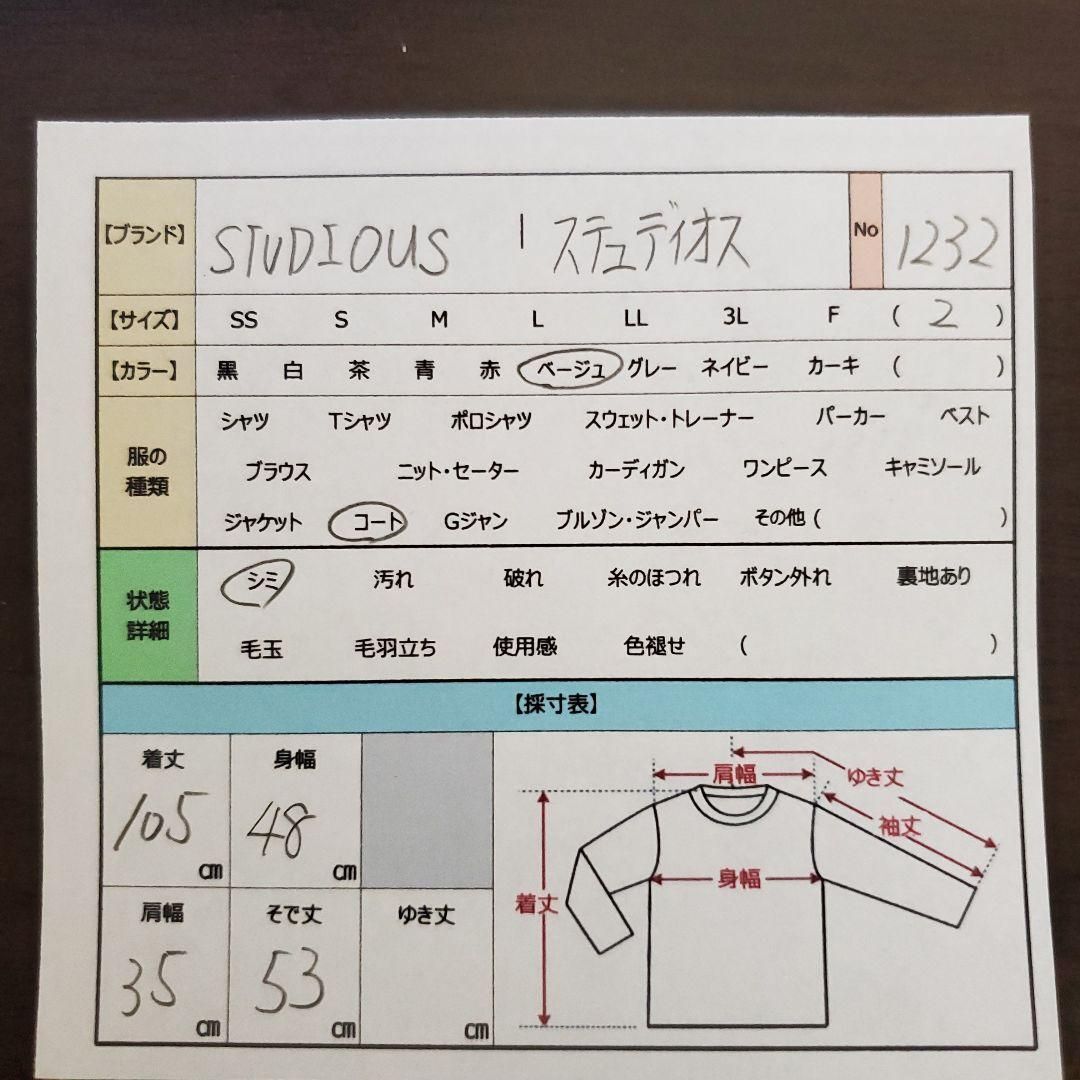 【ブランド】 STUDIOUS | ステュディオス No 1232
【サイズ】 SS S M L LL 3L F ( 2 )
【カラー】 黒 白 茶 青 赤 ベージュ グレー ネイビー カーキ ( )
服の
種類
シャツ Tシャツ ポロシャツ スウェット・トレーナー パーカー ベスト
ブラウス ニット・セーター カーディガン ワンピース キャミソール
ジャケット コート Gジャン ブルゾン・ジャンパー その他 ( )
状態
詳細
シミ 汚れ 破れ 糸のほつれ ボタン外れ 裏地あり
毛玉 毛羽立ち 使用感 色褪せ ( )
【採寸表】
着丈 身幅
105 cm 48 cm
肩幅 そで丈 ゆき丈
35 cm 53 cm cm
肩幅 ゆき丈
袖丈
身幅
着丈